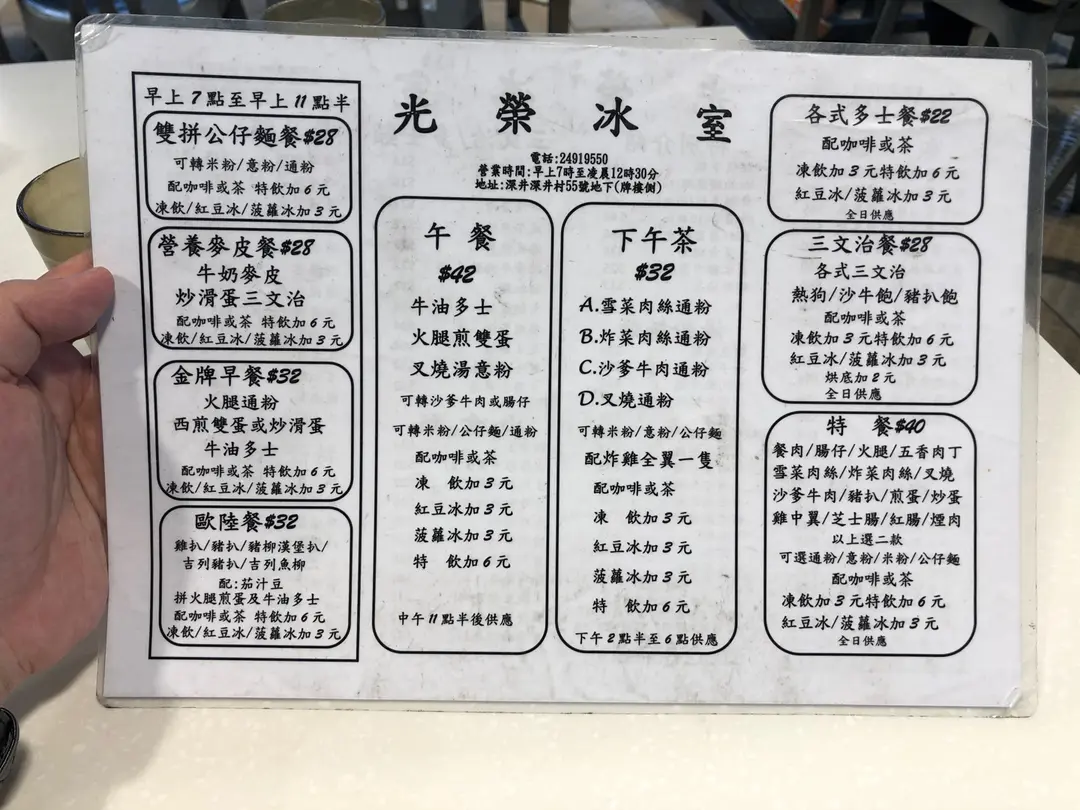 光榮冰室
電話:24919550
營業時間:早上7時至凌晨12時30分
地址:深井深井村55號地下(牌樓側)
早上7點至早上11點半
雙拼公仔麵餐$28
可轉米粉/意粉/通粉
配咖啡或茶 特飲加6元
凍飲/紅豆冰/菠蘿冰加3元
營養麥皮餐$28
牛奶麥皮
炒滑蛋三文治
配咖啡或茶 特飲加6元
凍飲/紅豆冰/菠蘿冰加3元
金牌早餐$32
火腿通粉
西煎雙蛋或炒滑蛋
牛油多士
配咖啡或茶 特飲加6元
凍飲/紅豆冰/菠蘿冰加3元
歐陸餐$32
雞扒/豬扒/豬柳漢堡扒/
吉列豬扒/吉列魚柳
配:茄汁豆
拼火腿煎蛋及牛油多士
配咖啡或茶 特飲加6元
凍飲/紅豆冰/菠蘿冰加3元
午餐
$42
牛油多士
火腿煎雙蛋
叉燒湯意粉
可轉沙爹牛肉或腸仔
可轉米粉/公仔麵/通粉
配咖啡或茶
凍 飲加3元
紅豆冰加3元
菠蘿冰加3元
特 飲加6元
中午11點半後供應
下午茶
$32
A.雪菜肉絲通粉
B.炸菜肉絲通粉
C.沙爹牛肉通粉
D.叉燒通粉
可轉米粉/意粉/公仔麵
配炸雞全翼一隻
配咖啡或茶
凍 飲加3元
紅豆冰加3元
菠蘿冰加3元
特 飲加6元
下午2點半至6點供應
各式多士餐$22
配咖啡或茶
凍飲加3元特飲加6元
紅豆冰/菠蘿冰加3元
全日供應
三文治餐$28
各式三文治
熱狗/沙牛飽/豬扒飽
配咖啡或茶
凍飲加3元特飲加6元
紅豆冰/菠蘿冰加3元
烘底加2元
全日供應
特 餐$40
餐肉/腸仔/火腿/五香肉丁
雪菜肉絲/炸菜肉絲/叉燒
沙爹牛肉/豬扒/煎蛋/炒蛋
雞中翼/芝士腸/紅腸/煙肉
以上選二款
可選通粉/意粉/米粉/公仔麵
配咖啡或茶
凍飲加3元特飲加6元
紅豆冰/菠蘿冰加3元
全日供應